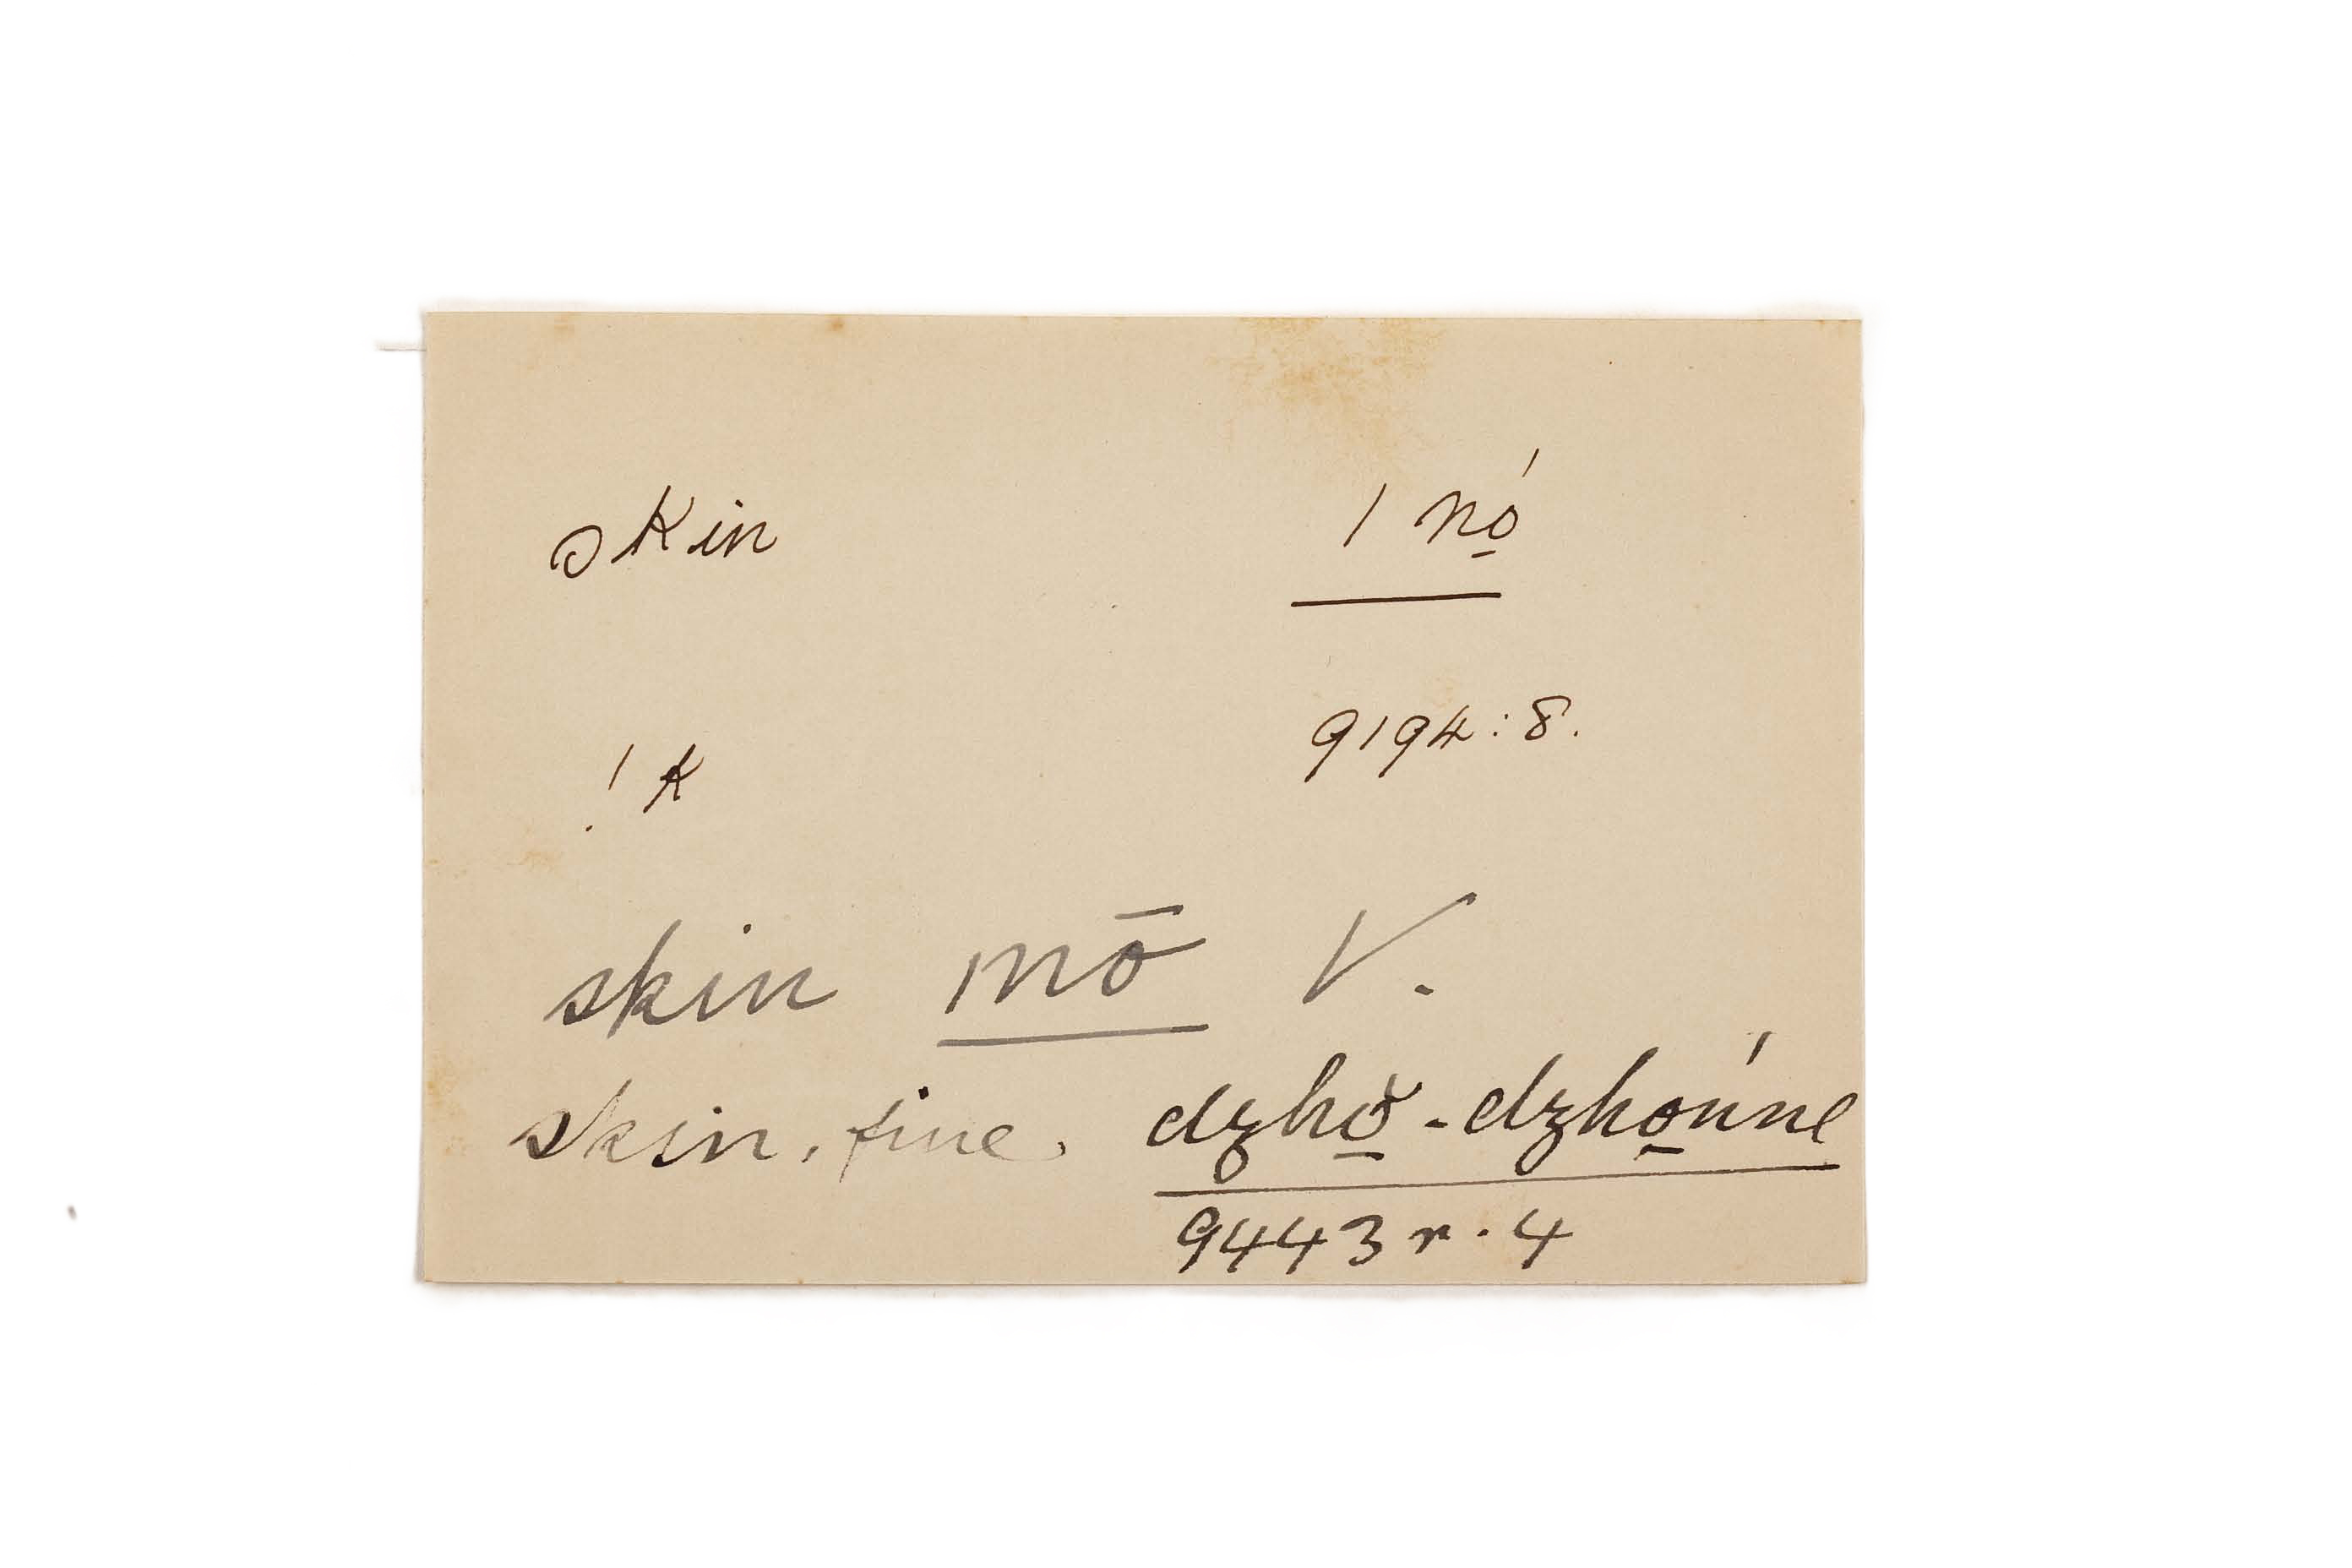 skin ǀnọ́
9194:8.
! k
skin mō V.
skin, fine. dzhọ̆-dzhọúne
9443 r. 4